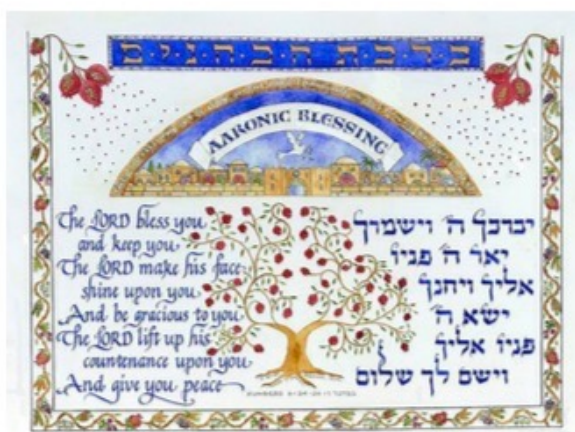 ברכת הכהנים
AARONIC BLESSING
The LORD bless you
and keep you
The LORD make his face
shine upon you
And be gracious to you
The LORD lift up his
countenance upon you
And give you peace
יברכך ה' וישמרך
יאר ה' פניו
אליך ויחנך
ישא ה'
פניו אליך
וישם לך שלום
NUMBERS 6:24-26